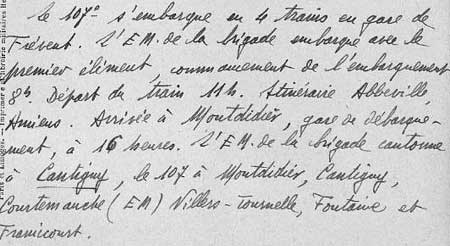 le 107e s'embarque en 4 trains en gare de
Frévent. L'E.M. de la brigade embarque avec le
premier élément commencement de l'embarquement
8h. Départ du train 11h. Itinéraire Abbeville,
Amiens. Arrivée à Montdidier, gare de débarque-
ment, à 16 heures. L'E.M. de la brigade cantonne
à Cantigny, le 107 à Montdidier, Cantigny,
Courtemanche (EM) Villers-Tournelle, Fontaine et
Framicourt.